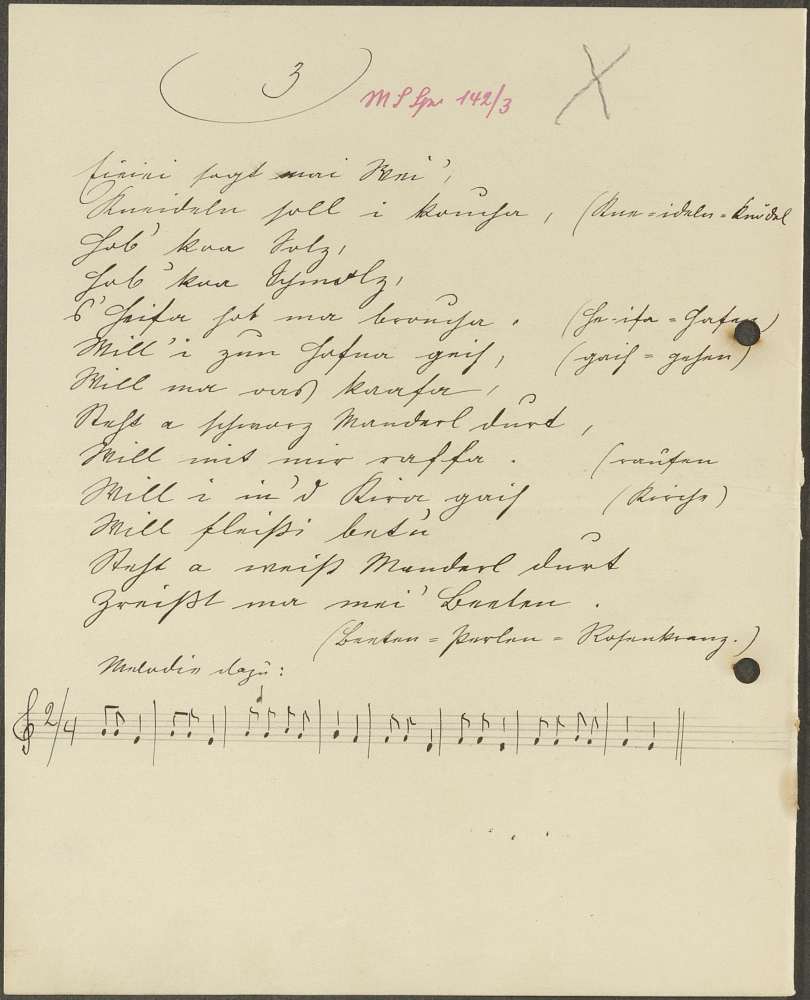 3
142/3
Eieiei sagt mai Wei',
Kneideln soll i koucha, (Kne-ideln = Knödel
Hob' kaa Solz,
Hob' kaa Schmolz,
s' Heifa hot ma broucha. (He-ifa = Hafen)
Will' i zun Hofna geih, (gaih = gehen)
Will ma oas kaafa,
Steht a schworz Manderl durt,
Will mit mir raffa. (raufen
Will i in'd Kira gaih (Kirche)
Will fleißi betn
Steht a weiß Manderl durt
Zreißt ma mei' Beeten.
(Beeten = Perlen = Rosenkranz.)
Melodie dazu:
2/4